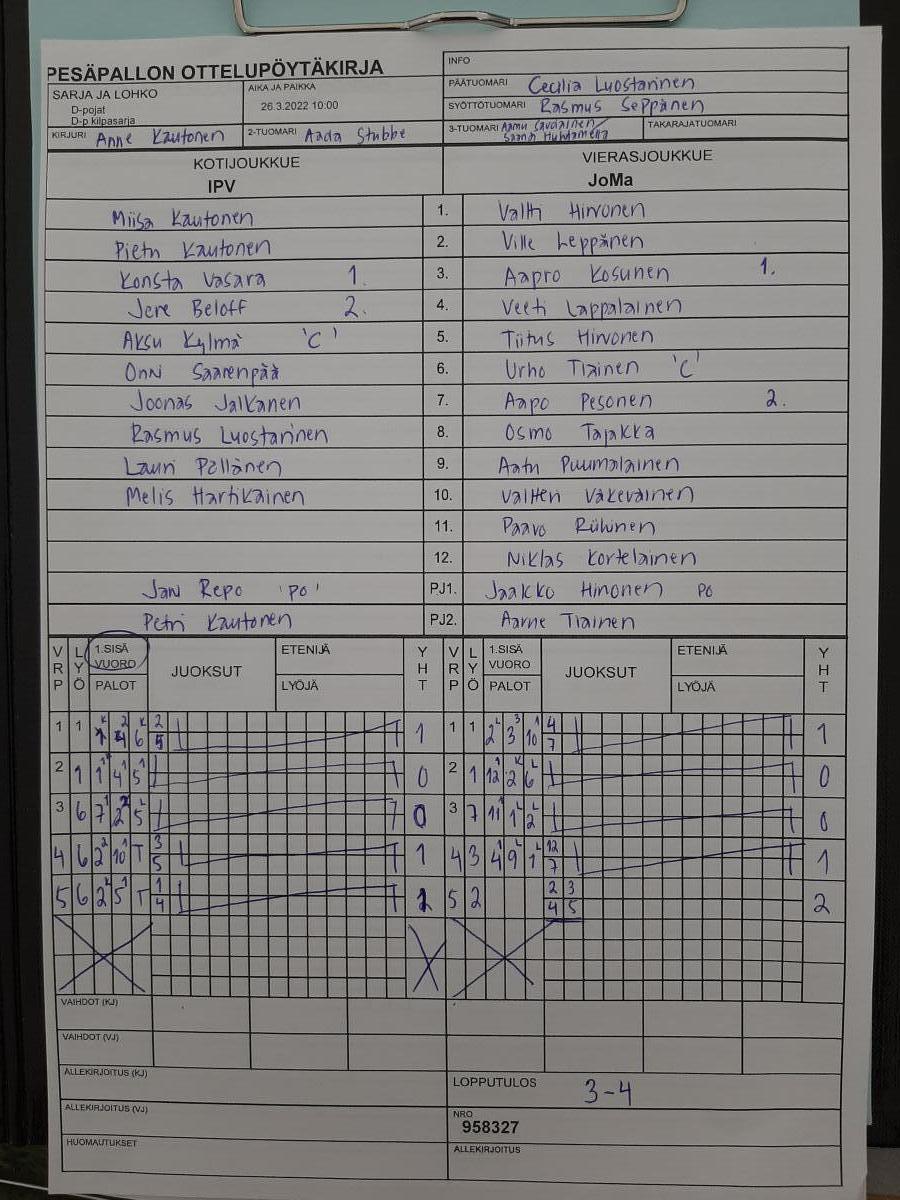 PESÄPALLON OTTELUPÖYTÄKIRJA
INFO
SARJA JA LOHKO
D-pojat
D-p kilpasarja
AIKA JA PAIKKA
26.3.2022 10:00
PÄÄTUOMARI Cecilia Luostarinen
SYÖTTÖTUOMARI Rasmus Seppänen
KIRJURI Anne Kautonen
2-TUOMARI Aada Stubbe
3-TUOMARI Aamu
TAKARAJATUOMARI
KOTIJOUKKUE
IPV
VIERASJOUKKUE
JoMa
Miisa Kautonen 1. Valtti Hirvonen
Pietu Kautonen 2. Ville Leppänen
Konsta Vasara 1. 3. Aapro Kosunen 1.
Jere Beloff 2. 4. Veeti Lappalainen
Aksu Kylmä 'C' 5. Tiitus Hirvonen
Onni Saarenpää 6. Urho Tiainen 'C'
Joonas Jalkanen 7. Aapo Pesonen 2.
Rasmus Luostarinen 8. Osmo Tajakka
Lauri Pöllänen 9. Aatu Puumalainen
Melis Hartikainen 10. Valtteri Väkeväinen
11. Paavo
12. Niklas Kortelainen
Jani Repo 'PO' PJ1. Jaakko Hinonen PO
Petri Kautonen PJ2. Aarne Tiainen
VRP LYÖ 1.SISÄ VUORO PALOT JUOKSUT ETENIJÄ LYÖJÄ YHT VRP LYÖ 1.SISÄ VUORO PALOT JUOKSUT ETENIJÄ LYÖJÄ YHT
1 1 6 2 5 1 1 1 2 3 10 4 7 1
2 1 1 4 5 0 2 1 12 2 6 0
3 6 7 2 5 0 3 7 11 1 2 0
4 6 2 10 T 3 5 1 4 3 4 9 1 12 7 1
5 6 2 5 T 1 4 1 5 2 2 3 4 5 2
VAIHDOT (KJ)
VAIHDOT (VJ)
ALLEKIRJOITUS (KJ)
LOPPUTULOS 3-4
ALLEKIRJOITUS (VJ)
NRO
958327
HUOMAUTUKSET
ALLEKIRJOITUS